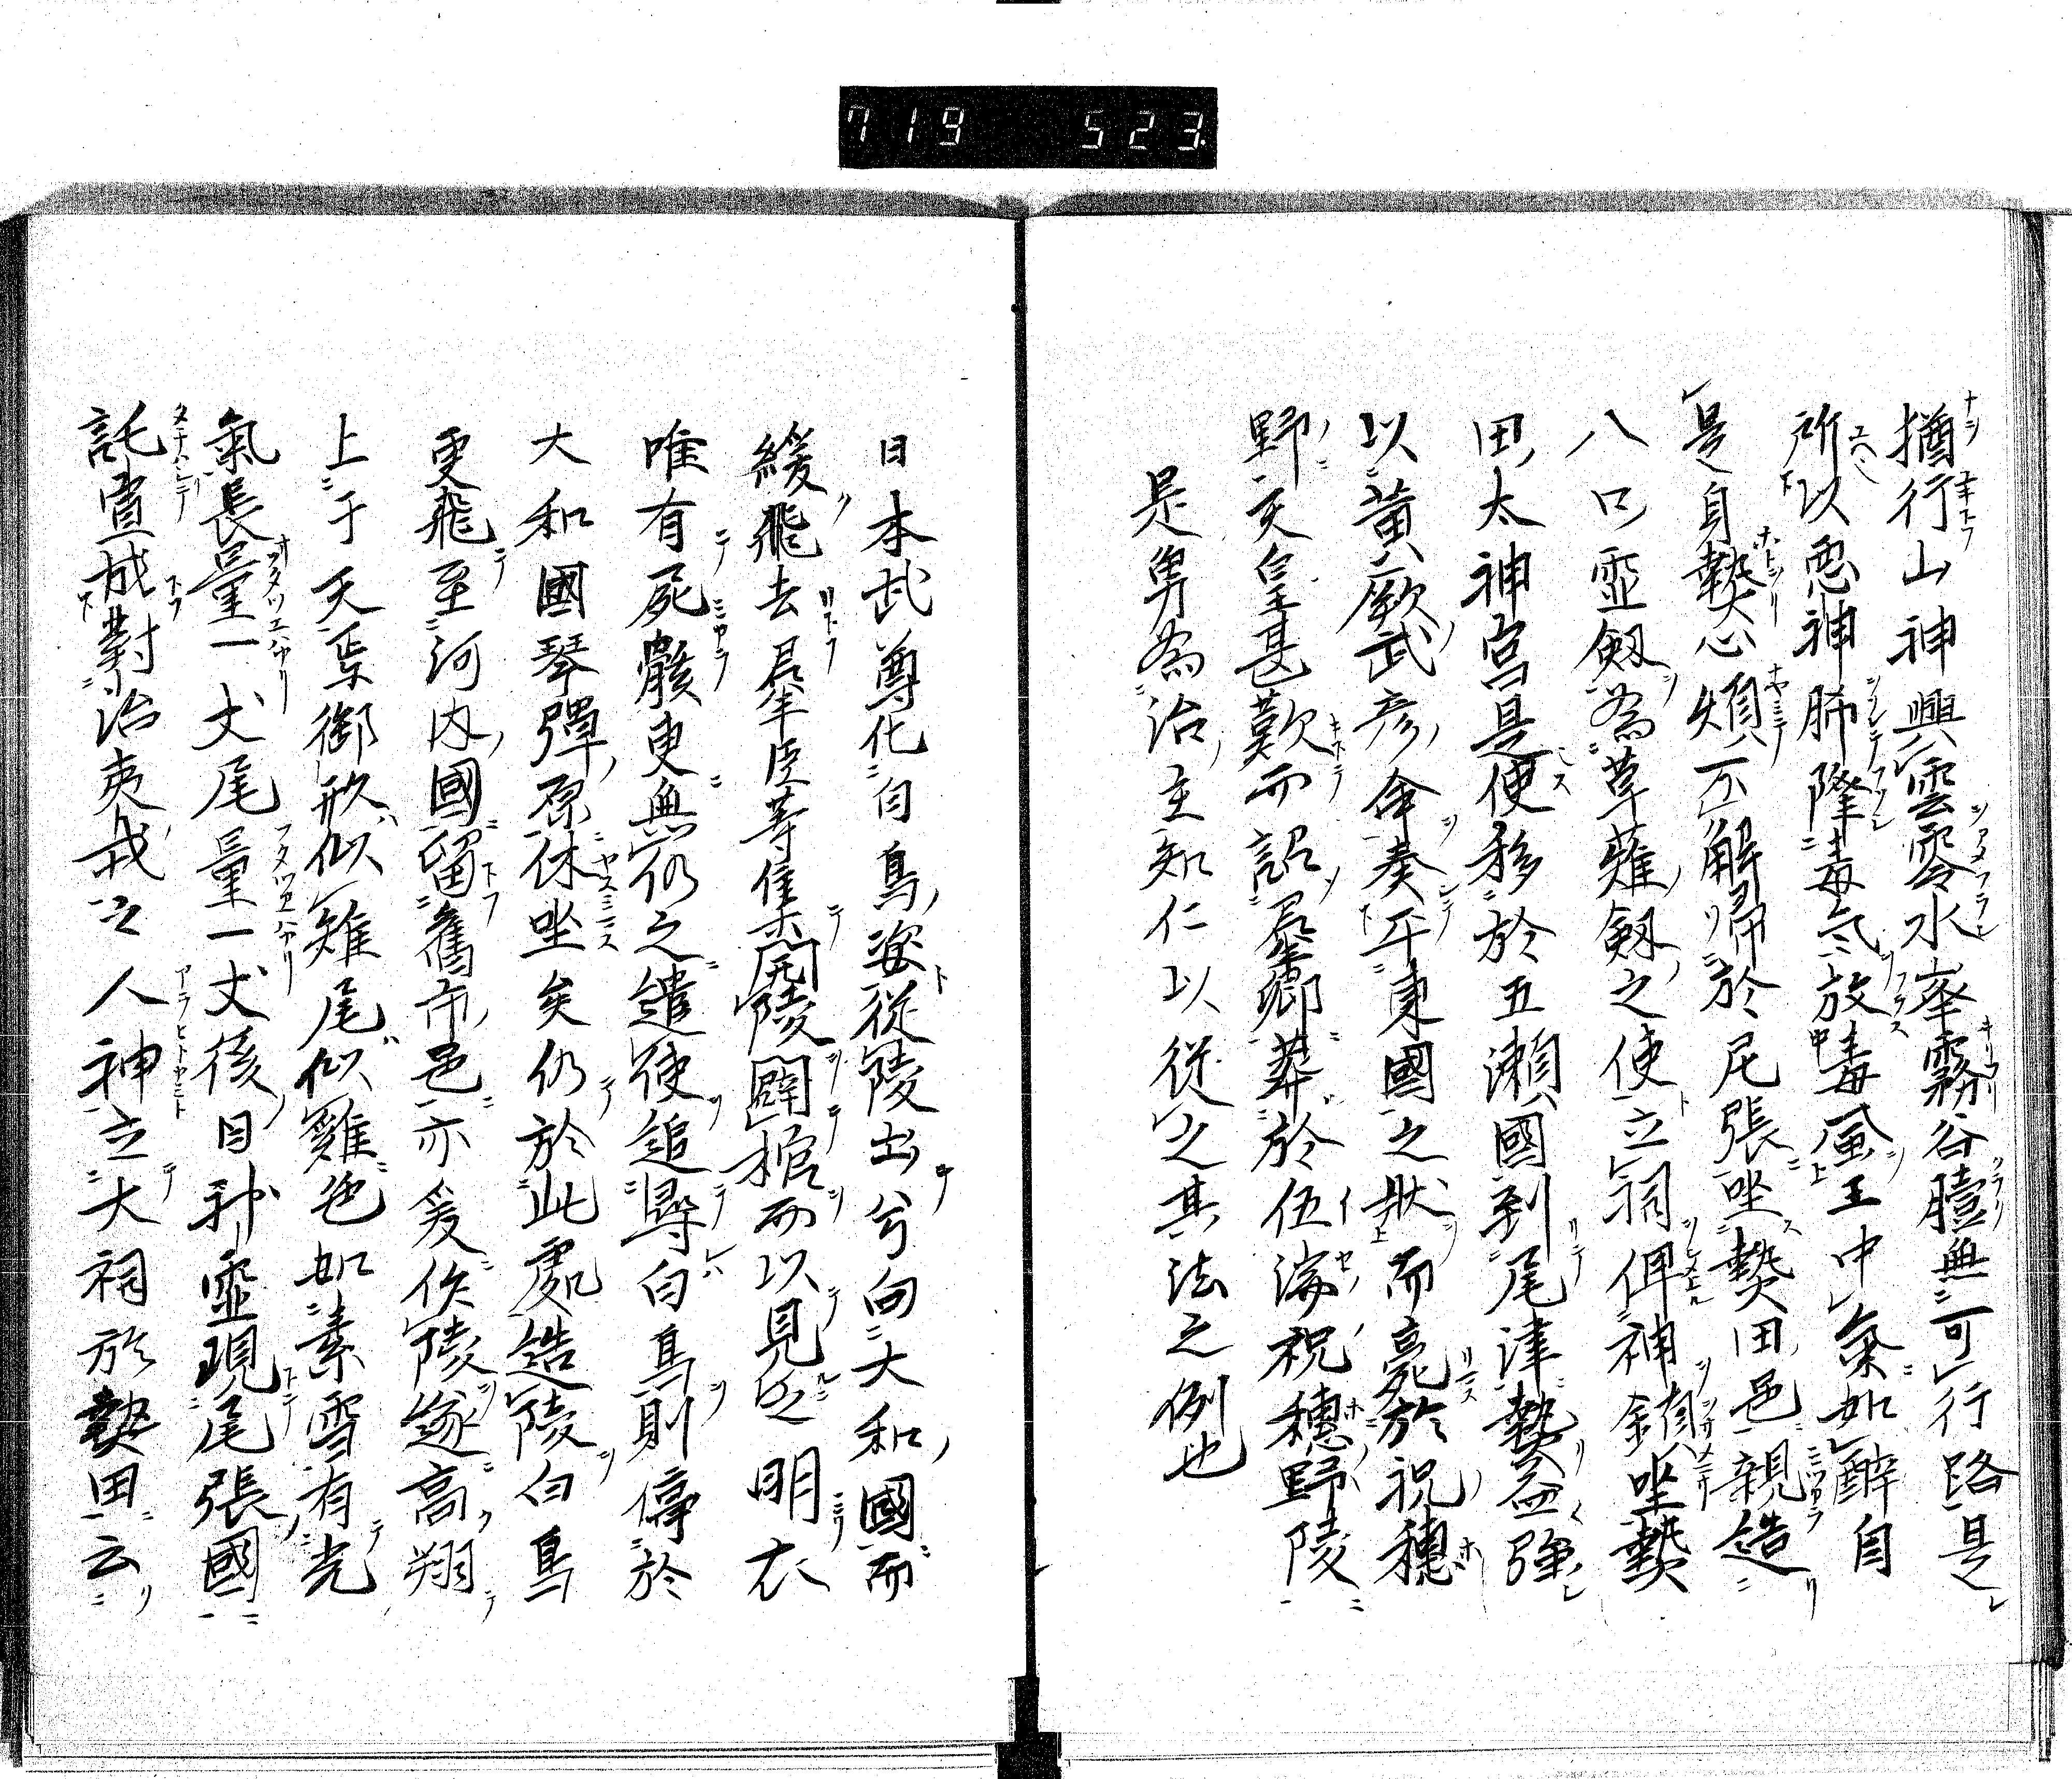 719 523.
猶行山神興雲零水峯霧谷曀無可行路是
所以悪神肺隆毒気放毒風王中氣如醉自
是身𤍠心煩不解歸於尾張坐𤍠田邑親造
八口霊剱為草薙剱之使立祠俾神鎮坐𤍠
田太神宮是使移於五瀬國到尾津𤍠益強
以黄厥武彦命奏平東國之状而薨於祝穂
野天皇甚歎而詔群卿葬於伍海祝穂野陵
是舅為治主知仁以従之其法之例也
日本武尊化白鳥姿従陵出兮向大和國而
緩飛去群臣等集開陵闢棺而以見之明衣
唯有屍骸更無仍之遣使追尋白鳥則停於
大和國琴彈原休坐矣仍於此處造陵白鳥
更飛至河内國留舊市邑亦爰作陵遂高翔
上于天焉御形似雉尾似雞色如素雪有光
氣長量一丈尾量一丈後日神霊現尾張國
託宣成對治夷我之人神立大祠於𤍠田云